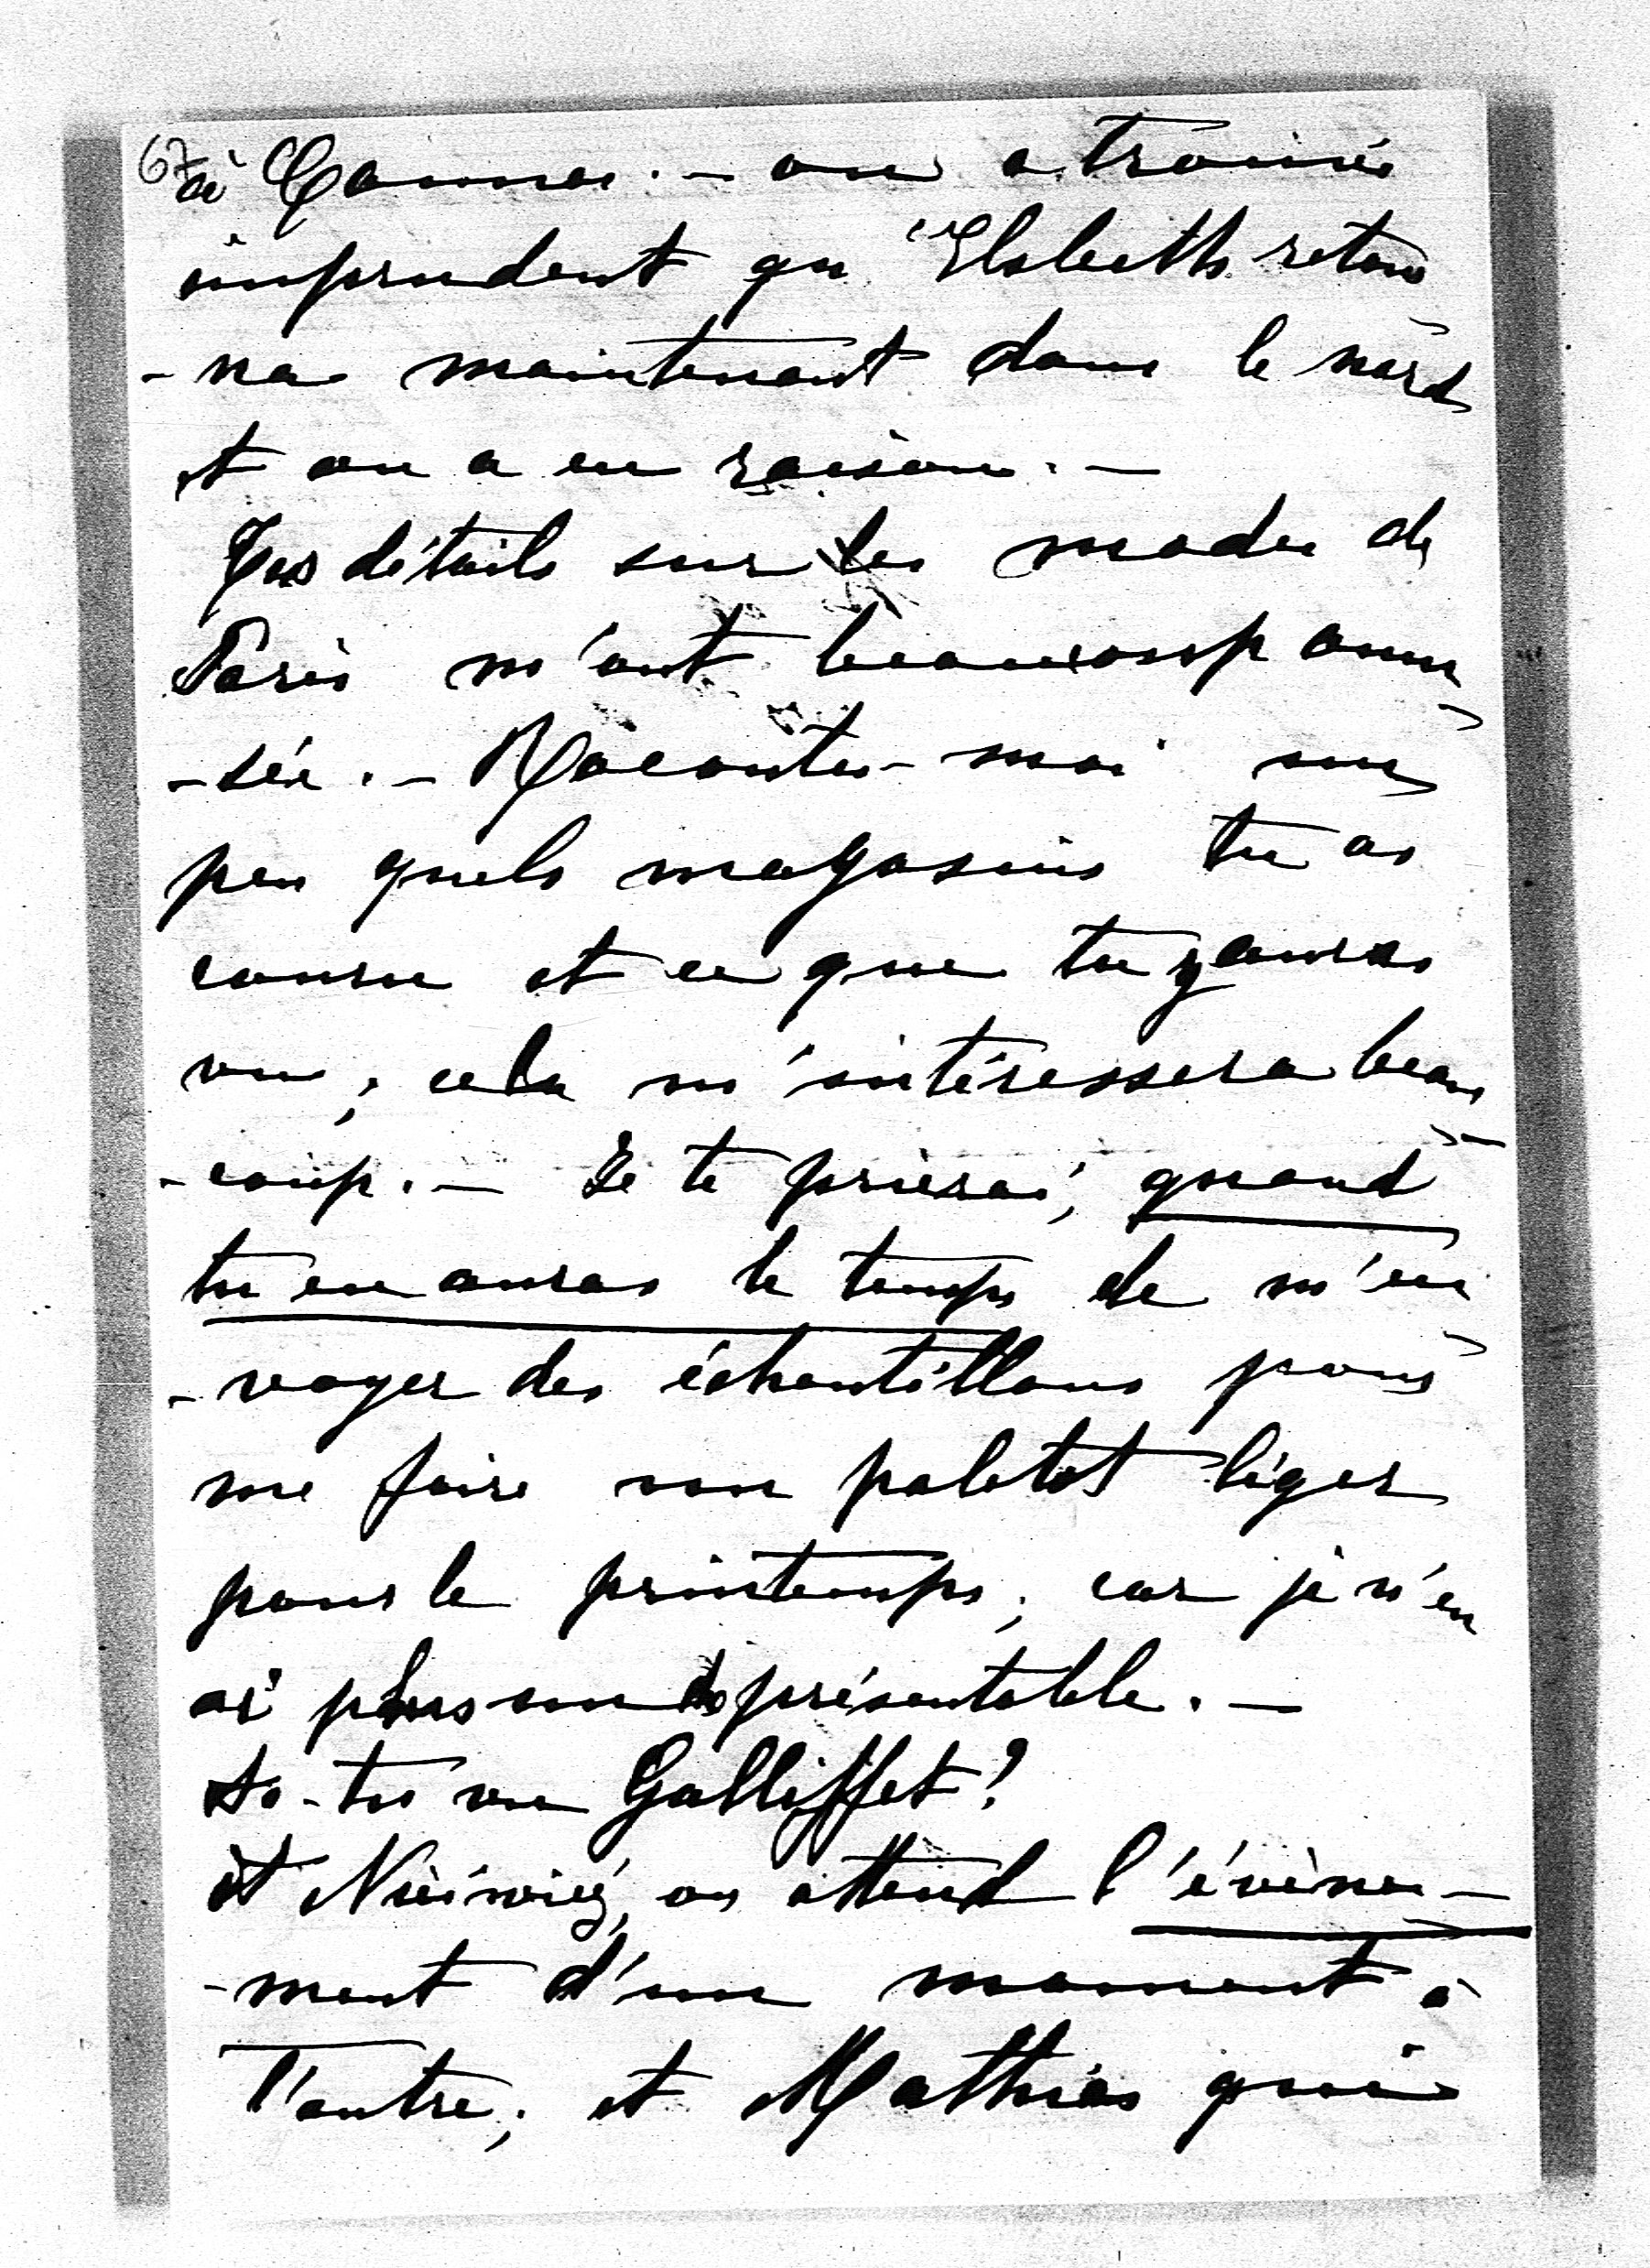 67
à Cannes. – on a trouvé
imprudent qu'Elsbeth retour
-na maintenant dans le nord
et on a eu raison. –
Tes détails sur les modes de
Paris m'ont beaucoup amu
-sée. – Racontes-moi un
peu quels magasins tu as
couru et ce que tu y auras
vu; cela m'intéressera beau
-coup. – Je te prierai, quand
tu en auras le temps de m'en
-voyer des échantillons pour
me faire un paletot léger
pour le printemps, car je n'en
ai plus un de présentable. –
As-tu vu Galliffet?
et on attend l'évène-
-ment d'un moment à
l'autre; et Mathias qui